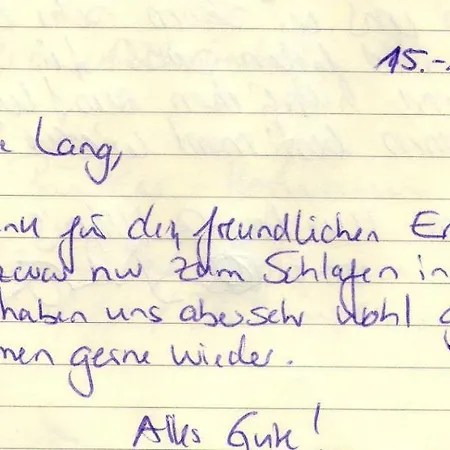 15.-
Lang,
für den freundlichen
zwar nur zum Schlafen in
haben uns aber sehr wohl
men gerne wieder.
Alles Gute!